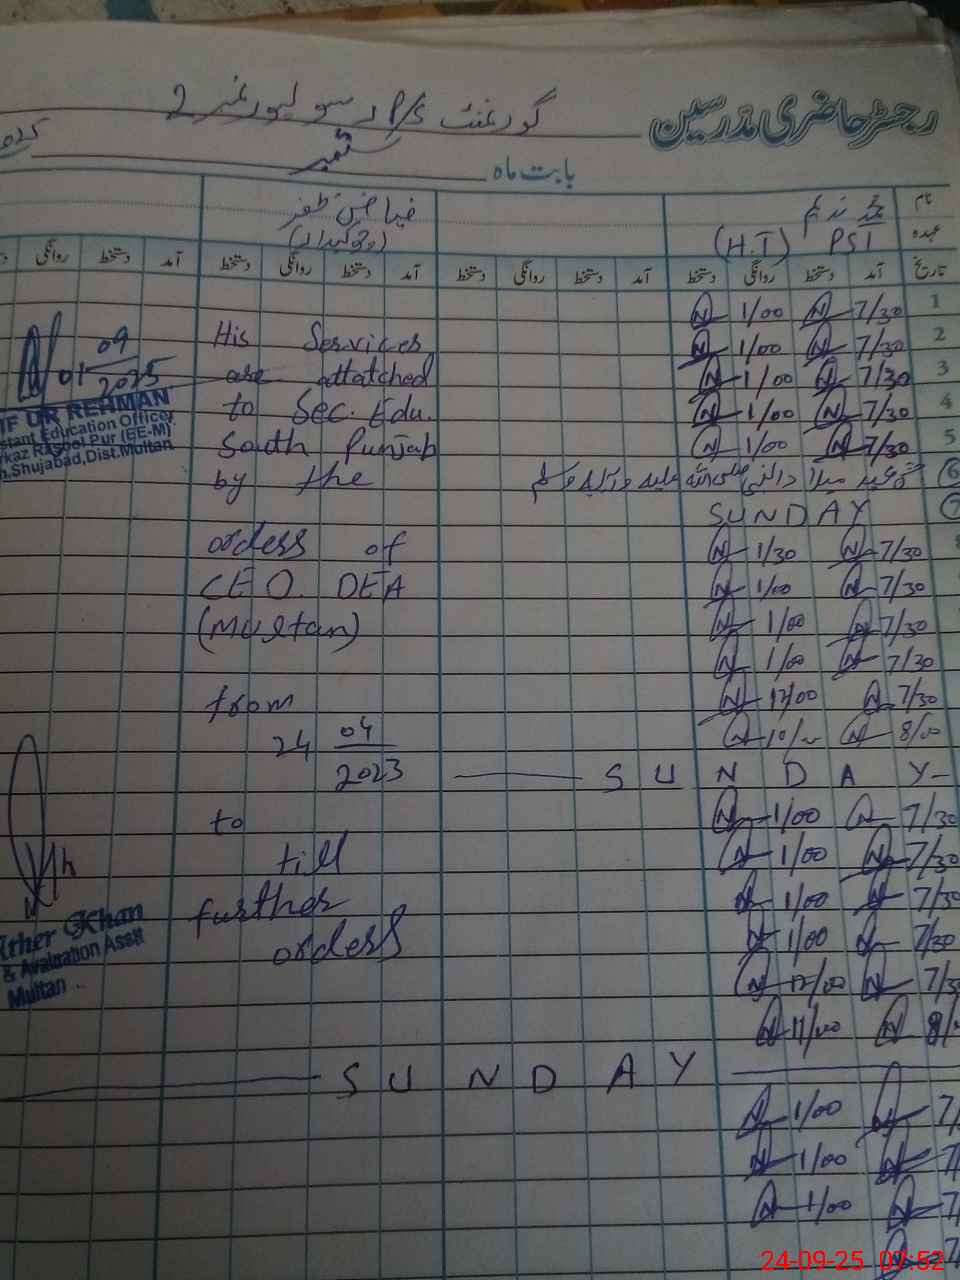 رجسٹر حاضری مدرسین گورنمنٹ P/S رسولپور نمبر 2
بابت ماہ ستمبر 2025
نام محمد ندیم فیاض ظفر
عہدہ PST (H.T) (چوکیدار)
تاریخ آمد دستخط روانگی دستخط آمد دستخط روانگی دستخط آمد دستخط روانگی دستخط آمد دستخط روانگی
1 7/30 N 1/00 N
2 7/30 N 1/00 N His Services
09
3 7/30 N 1/00 N are attatched
01 2025
4 7/30 N 1/00 N to Sec. Edu.
UR REHMAN
5 7/30 N 1/00 N South Punjab
stant Education Officer
rkaz Rasool Pur (EE-M)
h.Shujabad,Dist.Multan
6 عید میلاد النبی صلی اللہ علیہ وآلہ وسلم by the
7 SUNDAY
7/30 N 1/30 N orders of
7/30 N 1/00 N CEO. DEA
7/30 N 1/00 N (Multan)
7/30 N 1/00 N
7/30 N 12/00 N from
8/00 N 10/00 N 24 04
SUNDAY 2023
7/30 N 1/00 N to
7/30 N 1/00 N till
7/30 N 1/00 N further
7/30 N 1/00 N orders
ther Khan
& Avaluation Asstt
Multan
7/30 N 12/00 N
8/ N 11/00 N
SUNDAY
7/ N 1/00 N
7/ N 1/00 N
7/ N 1/00 N
7 N
24-09-25 07:52